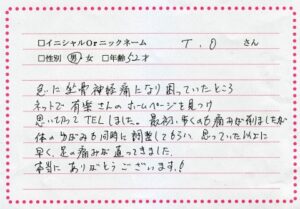 □イニシャルOrニックネーム T.O さん
□性別 男 女 □年齢 52才
急に坐骨神経痛になり困っていたところ
ネットで有楽さんのホームページを見つけ
思い切ってTELしました。最初、歩くのも痛みが有りましたが
体のゆがみも同時に調整してもらい、思っていた以上に
早く、足の痛みが直ってきました。
本当にありがとうございます。